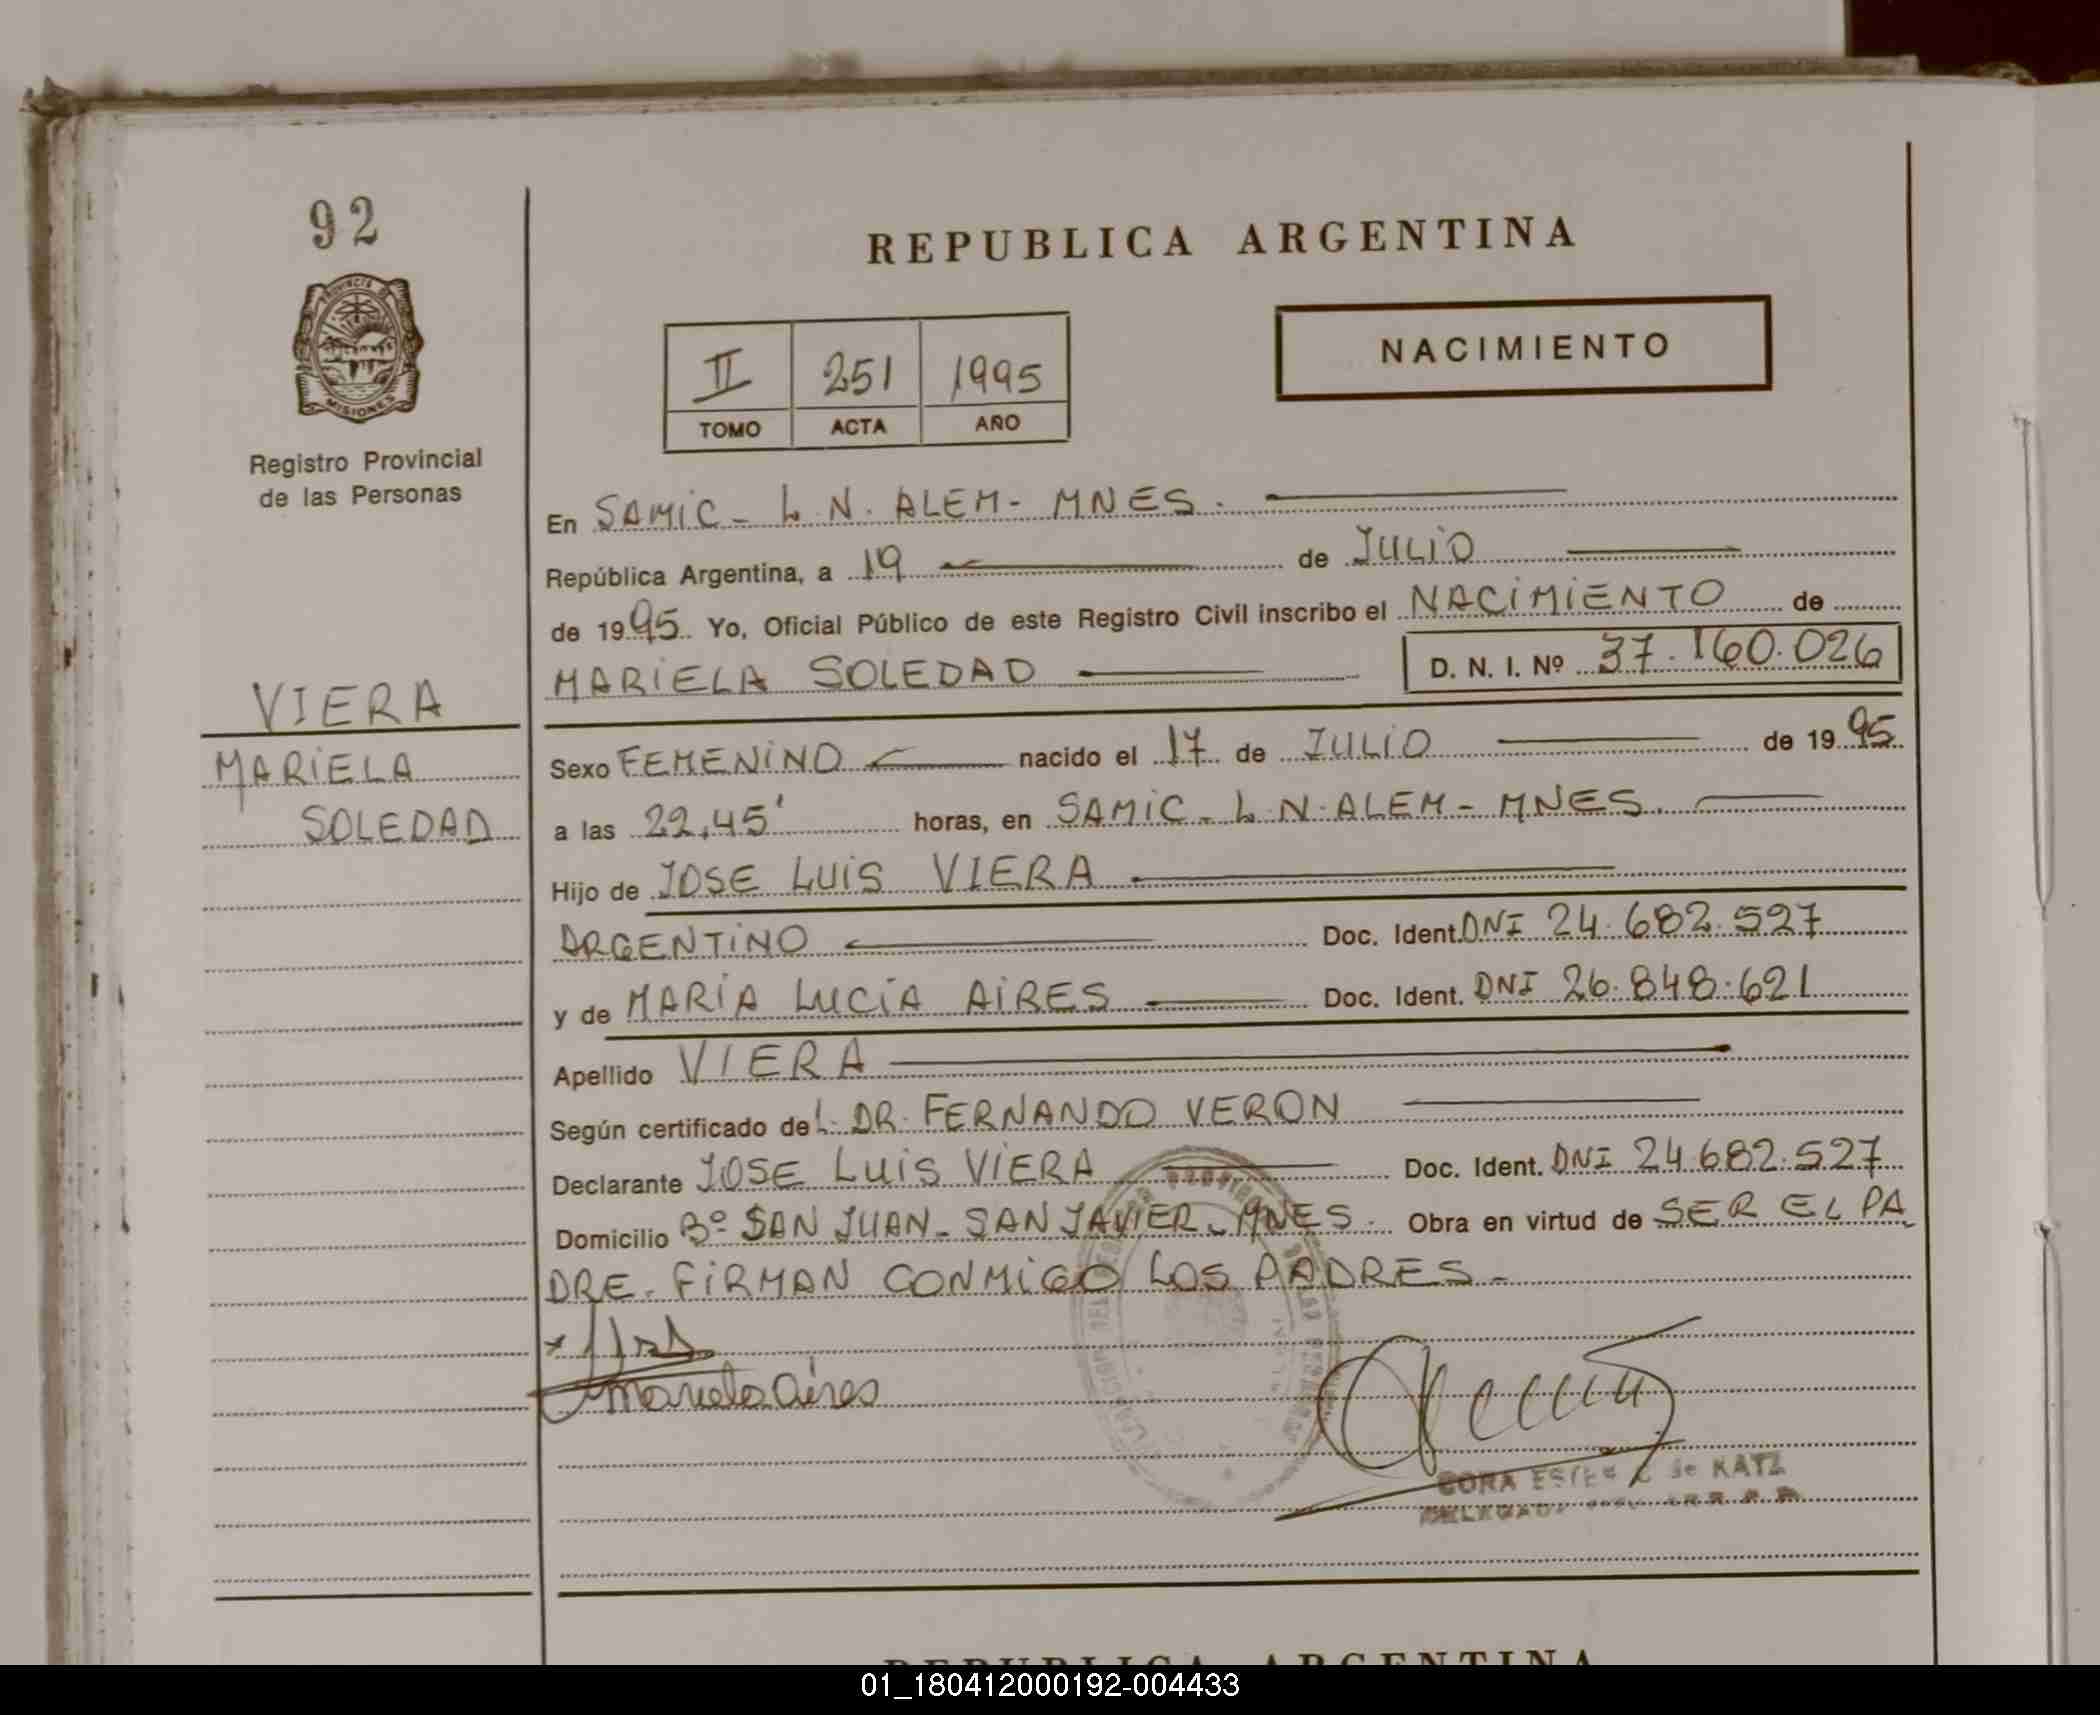 92
PROVINCIA DE
MISIONES
Registro Provincial
de las Personas
VIERA
MARIELA
SOLEDAD
REPUBLICA ARGENTINA
II 251 1995
TOMO ACTA AÑO
NACIMIENTO
En SAMIC - L.N. ALEM - MNES.
República Argentina, a 19 de JULIO
de 1995. Yo, Oficial Público de este Registro Civil inscribo el NACIMIENTO de
MARIELA SOLEDAD D. N. I. Nº 37.160.026
Sexo FEMENINO nacido el 17 de JULIO de 1995
a las 22,45' horas, en SAMIC - L.N. ALEM - MNES.
Hijo de JOSE LUIS VIERA
ARGENTINO Doc. Ident. DNI 24.682.527
y de MARIA LUCIA AIRES Doc. Ident. DNI 26.848.621
Apellido VIERA
Según certificado del. DR. FERNANDO VERON
Declarante JOSE LUIS VIERA Doc. Ident. DNI 24.682.527
Domicilio Bº SAN JUAN - SAN JAVIER - MNES. Obra en virtud de SER EL PA
DRE. FIRMAN CONMIGO LOS PADRES -
Aires
de KATZ
REPUBLICA ARGENTINA
01_180412000192-004433